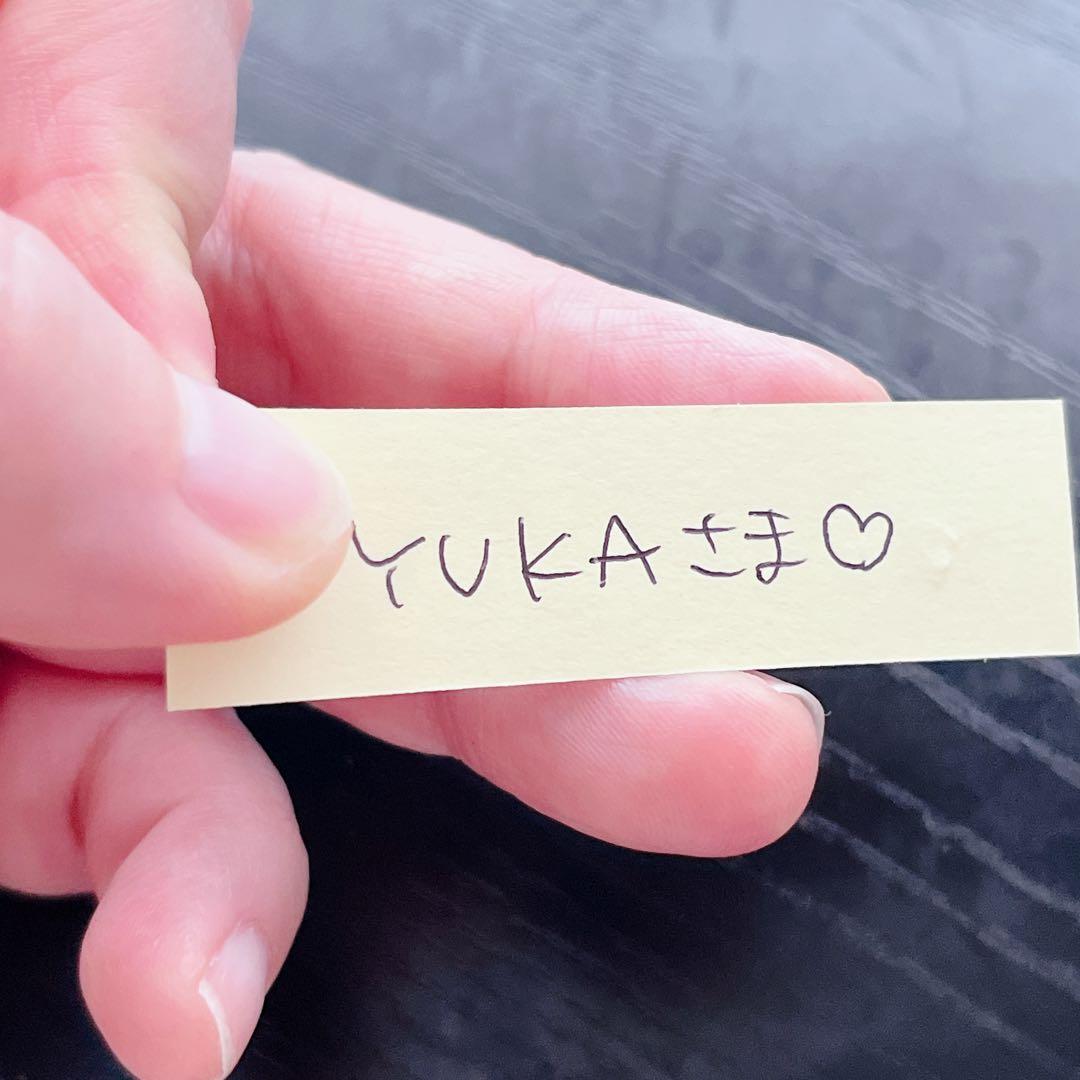 YUKAさま♡